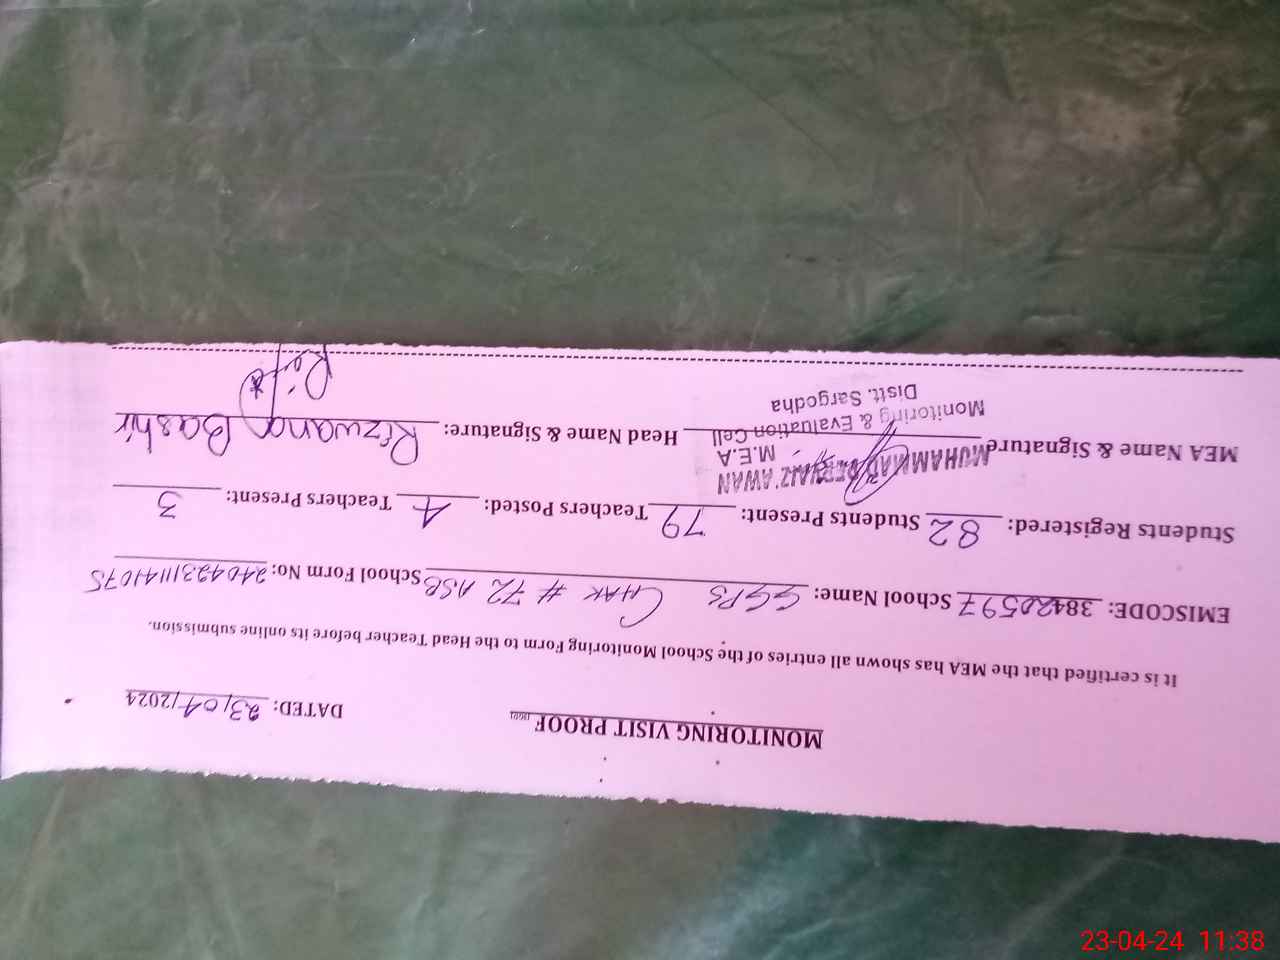 MONITORING VISIT PROOF
DATED: 23/04/2024
It is certified that the MEA has shown all entries of the School Monitoring Form to the Head Teacher before its online submission.
EMISCODE: 38420597 School Name: GGPS CHAK # 72 ASB School Form No: 24042311141075
Students Registered: 82 Students Present: 79 Teachers Posted: 4 Teachers Present: 3
MEA Name & Signature Head Name & Signature: Rizwana Bashir
MUHAMMAD PERVAIZ AWAN
M.E.A
Monitoring & Evaluation Cell
Distt. Sargodha
23-04-24 11:38